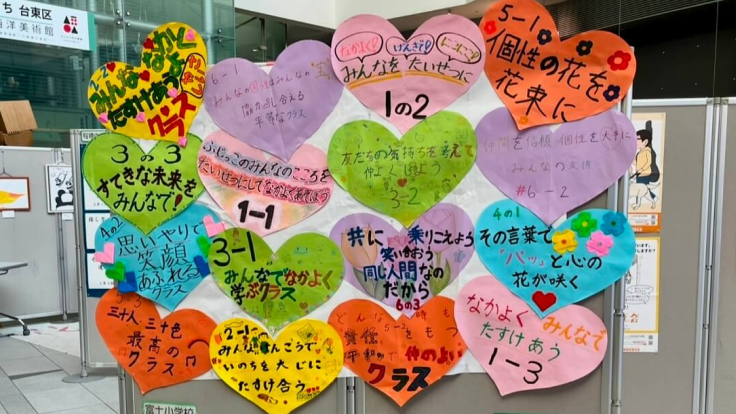 台東区
洋美術館
2-2
みんななかよく
たすけあう
クラス
6-1
みんなの
協力し合える
平等なクラス
なかよく げんき にこにこ
みんなをたいせつに
1の2
5-1
個性の花を
花束に
3の3
すてきな未来を
みんなで!
ふじっこのみんなのこころを
たいせつにしてなかよくあそぼう
1-1
友だちの気持ちを考えて
仲よくしよう
3-2
仲間を信頼 個性を大事に
みんなの
#6-2
4の2
思いやりで
笑顔
あふれる
クラス
3-1
みんなでなかよく
学ぶクラス
共に 乗りこえよう
笑い合おう
同じ人間なの
だから
6の3
4の1
その言葉で
「パッ」と心の
花が咲く
5-3
三十人三十色
最高の
クラス
2-1
みんな
いのちを大じに
たすけ合う
どんな時も
5-2
をもつ
仲のよい
クラス
なかよく みんなで
たすけあう
1-3
富士小学校